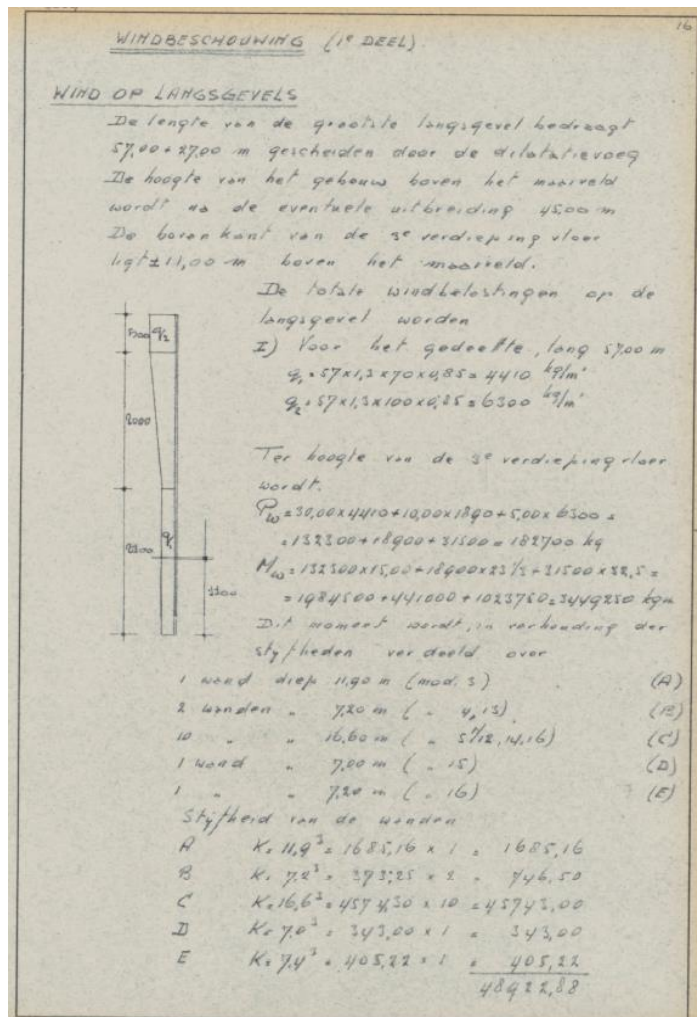 16
WINDBESCHOUWING (1e DEEL)
WIND OP LANGSGEVELS
De lengte van de grootste langsgevel bedraagt
57,00 + 27,00 m gescheiden door de dilatatievoeg
De hoogte van het gebouw boven het maaiveld
wordt na de eventuele uitbreiding 45,00 m
De bovenkant van de 3e verdieping vloer
ligt ± 11,00 m boven het maaiveld.
De totale windbelastingen op de
langsgevel worden
I) Voor het gedeelte, lang 57,00 m
q₁ = 57 x 1,3 x 70 x 0,85 = 4410 kg/m'
q₂ = 57 x 1,3 x 100 x 0,85 = 6300 kg/m'
q₂
q₁
1100
Ter hoogte van de 3e verdieping vloer
wordt.
Pw = 30,00 x 4410 + 10,00 x 1890 + 5,00 x 6300 =
= 132300 + 18900 + 31500 = 182700 kg
Mw = 132300 x 15,00 + 18900 x 23 1/3 + 31500 x 32,5 =
= 1984500 + 441000 + 1023750 = 3449250 kgm
Dit moment wordt, in verhouding der
styfheden verdeeld over
1 wand diep 11,90 m (mod. 3) (A)
2 wanden " 7,20 m ( " 4, 13) (B)
10 " " 16,60 m ( " 5 t/m 12, 14, 16) (C)
1 wand " 7,00 m ( " 15) (D)
1 " " 7,20 m ( " 16) (E)
Styfheid van de wanden
A K = 11,9³ = 1685,16 x 1 = 1685,16
B K = 7,2³ = 373,25 x 2 = 746,50
C K = 16,6³ = 4574,30 x 10 = 45743,00
D K = 7,0³ = 343,00 x 1 = 343,00
E K = 7,4³ = 405,22 x 1 = 405,22
48922,88